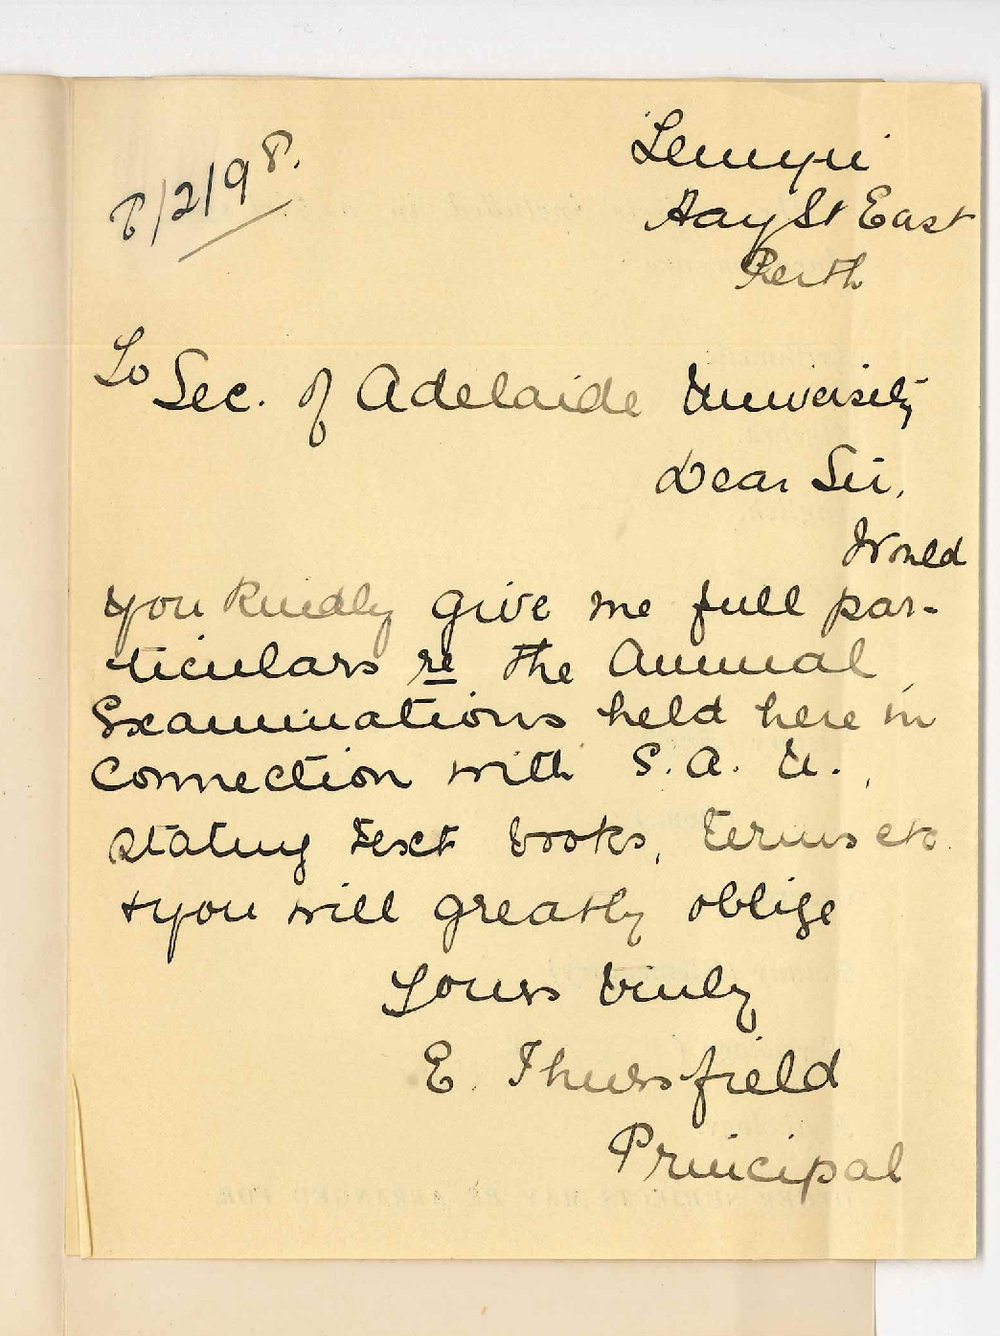 8/2/98.
Hay St East
Perth
To Sec. of Adelaide University
Dear Sir,
Would
you kindly give me full par-
ticulars re the Annual
Examinations held here in
connection with S. A. U.,
stating text books, terms etc.
& you will greatly oblige
Yours truly
E. Thursfield
Principal